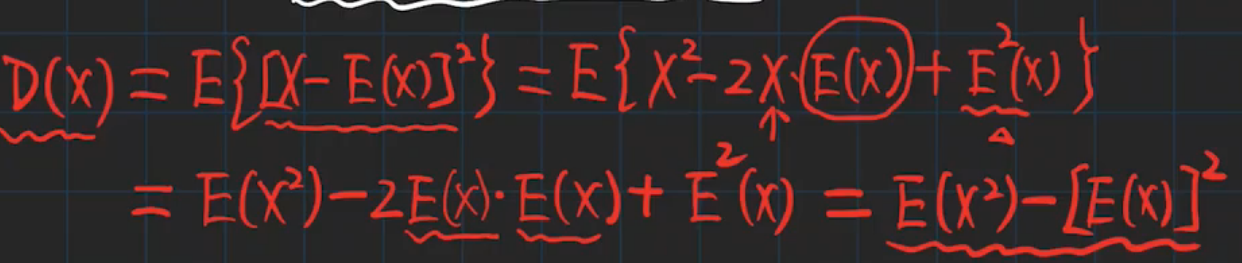 D(X) = E{[X-E(X)]²} = E{X²-2X·E(X)+E²(X)}
= E(X²)-2E(X)·E(X)+E²(X) = E(X²)-[E(X)]²